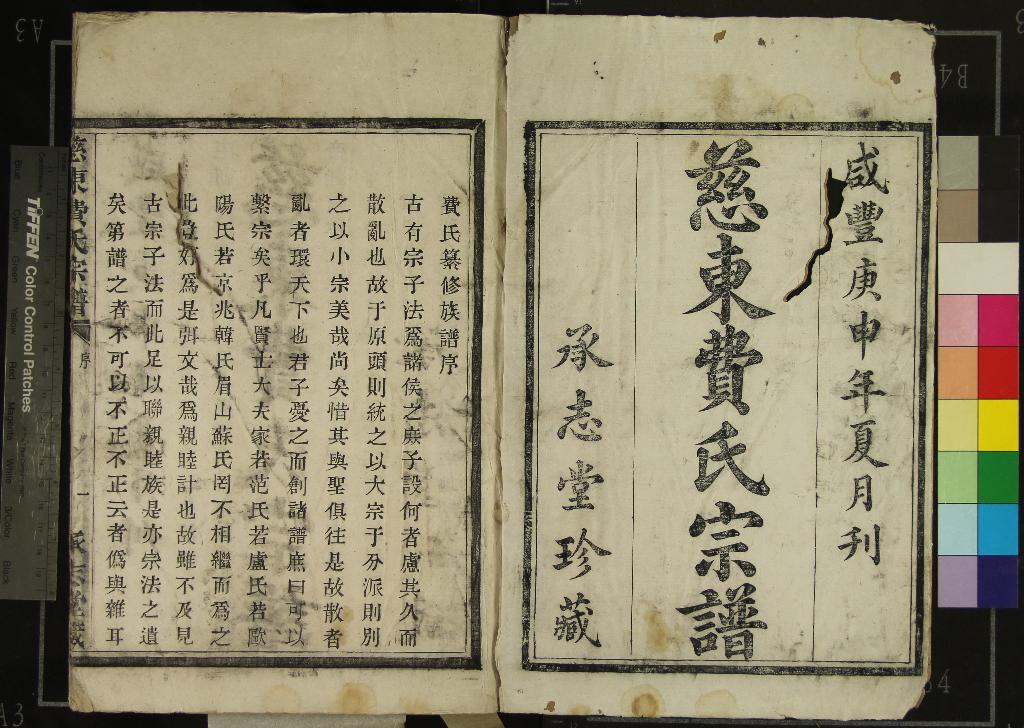 咸豐庚申年夏月刊
慈東費氏宗譜
承志堂珍藏
費氏纂修族譜序
古有宗子法爲諸侯之庶子設何者慮其久而
散亂也故于原頭則統之以大宗于分派則別
之以小宗美哉尚矣惜其與聖俱往是故散者
亂者環天下也君子憂之而創諸譜庶曰可以
繫宗矣乎凡賢士大夫家若范氏若盧氏若歐
陽氏若京兆韓氏眉山蘇氏罔不相繼而爲之
此豈好爲是弭文哉爲親睦計也故雖不及見
古宗子法而此足以聯親睦族是亦宗法之遺
矣第譜之者不可以不正不正云者僞與雜耳
慈東費氏宗譜
序
一
TIFFEN Color Control Patches
Blue
Cyan
Green
Yellow
Red
Magenta
White
3/Color
Black
A3
B4
A3